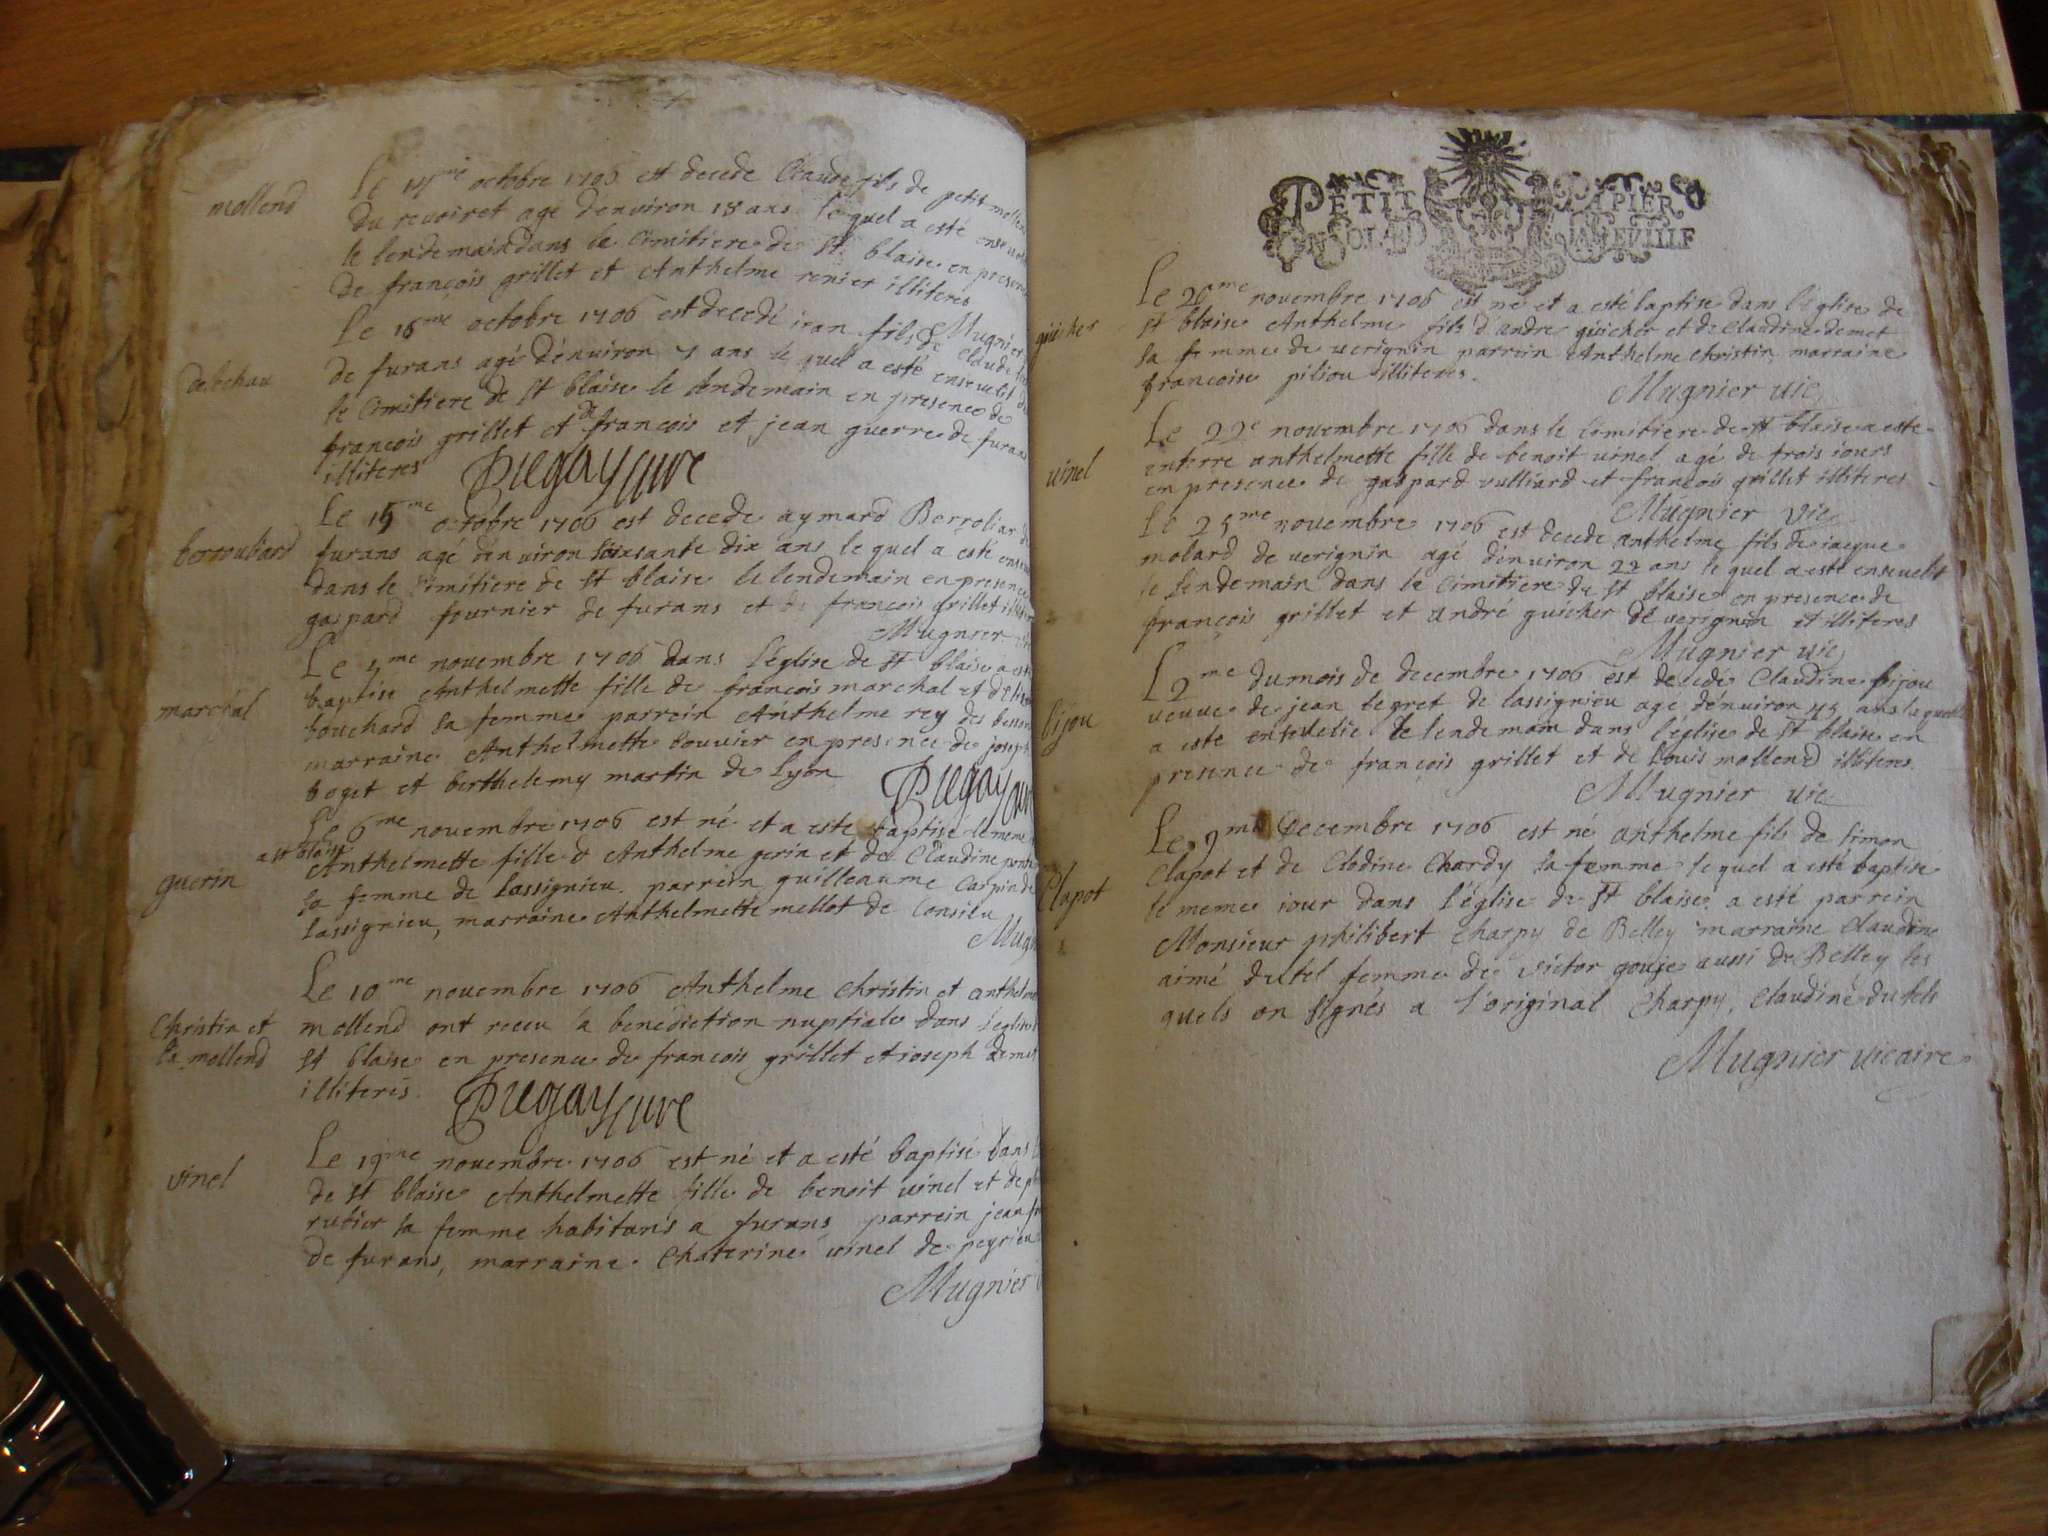 mollend
Le 14me octobre 1706 est decede Claude fils de petit
du revoiret agé denviron 18 ans le quel a esté
le lendemain dans le cimitiere de st blaise en
de françois grillet et Anthelme renier illiteres
Mugnier
debehau
Le 16me octobre 1706 est decedé iean fils de Claude
de furans agé d'environ 7 ans le quel a esté ensevelit
le cimitiere de st blaise le lendemain en presence de
françois grillet et de françois et jean guerre de furans
illiteres
cure
berrouliard
Le 19me octobre 1706 est decede aymard Berroliar
furans agé denviron soisante dix ans le quel a esté
dans le cimitiere de st blaise le lendemain en presence
gaspard fournier de furans et de francois grillet
Mugnier
marchal
Le 4me novembre 1706 dans l'église de st blaise a esté
baptise Anthelmette fille de françois marchal et
bouchard sa femme parrein Anthelme rey des
marraine Anthelmette bouvier en presence de joseph
boget et berthelemy martin de Lyon
guerin
Le 6me novembre 1706 est né et a este baptisé le meme
a st blaise
Anthelmette fille d Anthelme gerin et de Claudine
sa femme de lassignieu parrein guilleaume Carpin de
lassignieu, marraine Anthelmette mellet de Consieu
Christin et
la mollend
Le 10me novembre 1706 Anthelme Christin et
mollend ont receu la benediction nuptiale dans l'église
st blaise en presence de francois grillet et joseph demet
illiteres
cure
vinel
Le 19me novembre 1706 est né et a esté baptisé dans
de st blaise Anthelmette fille de benoit vinel et de
rubier sa femme habitans a furans parrein jean
de furans, marraine Chaterine vinel de peyrieu
Mugnier
PETIT PAPIER
UN SOL LA FEVILLE
guicher
Le 20me novembre 1706 est né et a esté baptise dans l'église de
st blaise Anthelme fils d'andre guicher et de Claudine demet
sa femme de verignin parrein Anthelme Christin marraine
françoise piliou illiteres.
Mugnier vic
vinel
Le 22e novembre 1706 dans le cimitiere de st blaise a esté
enterre anthelmette fille de benoit vinel agé de trois iours
en presence de gaspard vulliard et françois grillet illiteres
Mugnier vic
Le 25me novembre 1706 est decede anthelme fils de iacque
molard de verignin agé d'environ 22 ans le quel a esté ensevelit
le lendemain dans le cimitiere de st blaise en presence de
françois grillet et andré guicher de verignin et illiteres
Mugnier vic
bijou
L 2me du mois de decembre 1706 est decede Claudine bijou
veuve de jean legret de lassignieu agé d'environ 45 ans la quelle
a esté ensevelie le lendemain dans l'église de st blaise en
presence de françois grillet et de Louis mollend illiteres.
Mugnier vic
Clapot
Le 9me Decembre 1706 est né anthelme fils de simon
Clapot et de Clodine Chardy sa femme le quel a esté baptise
le meme iour dans l'église de st blaise a esté parrein
Monsieur philibert Charpy de Belley marraine Claudine
aimé dutel femme de victor gouje aussi de Belley les
quels on signés a l'original Charpy, Claudine dutels
Mugnier vicaire